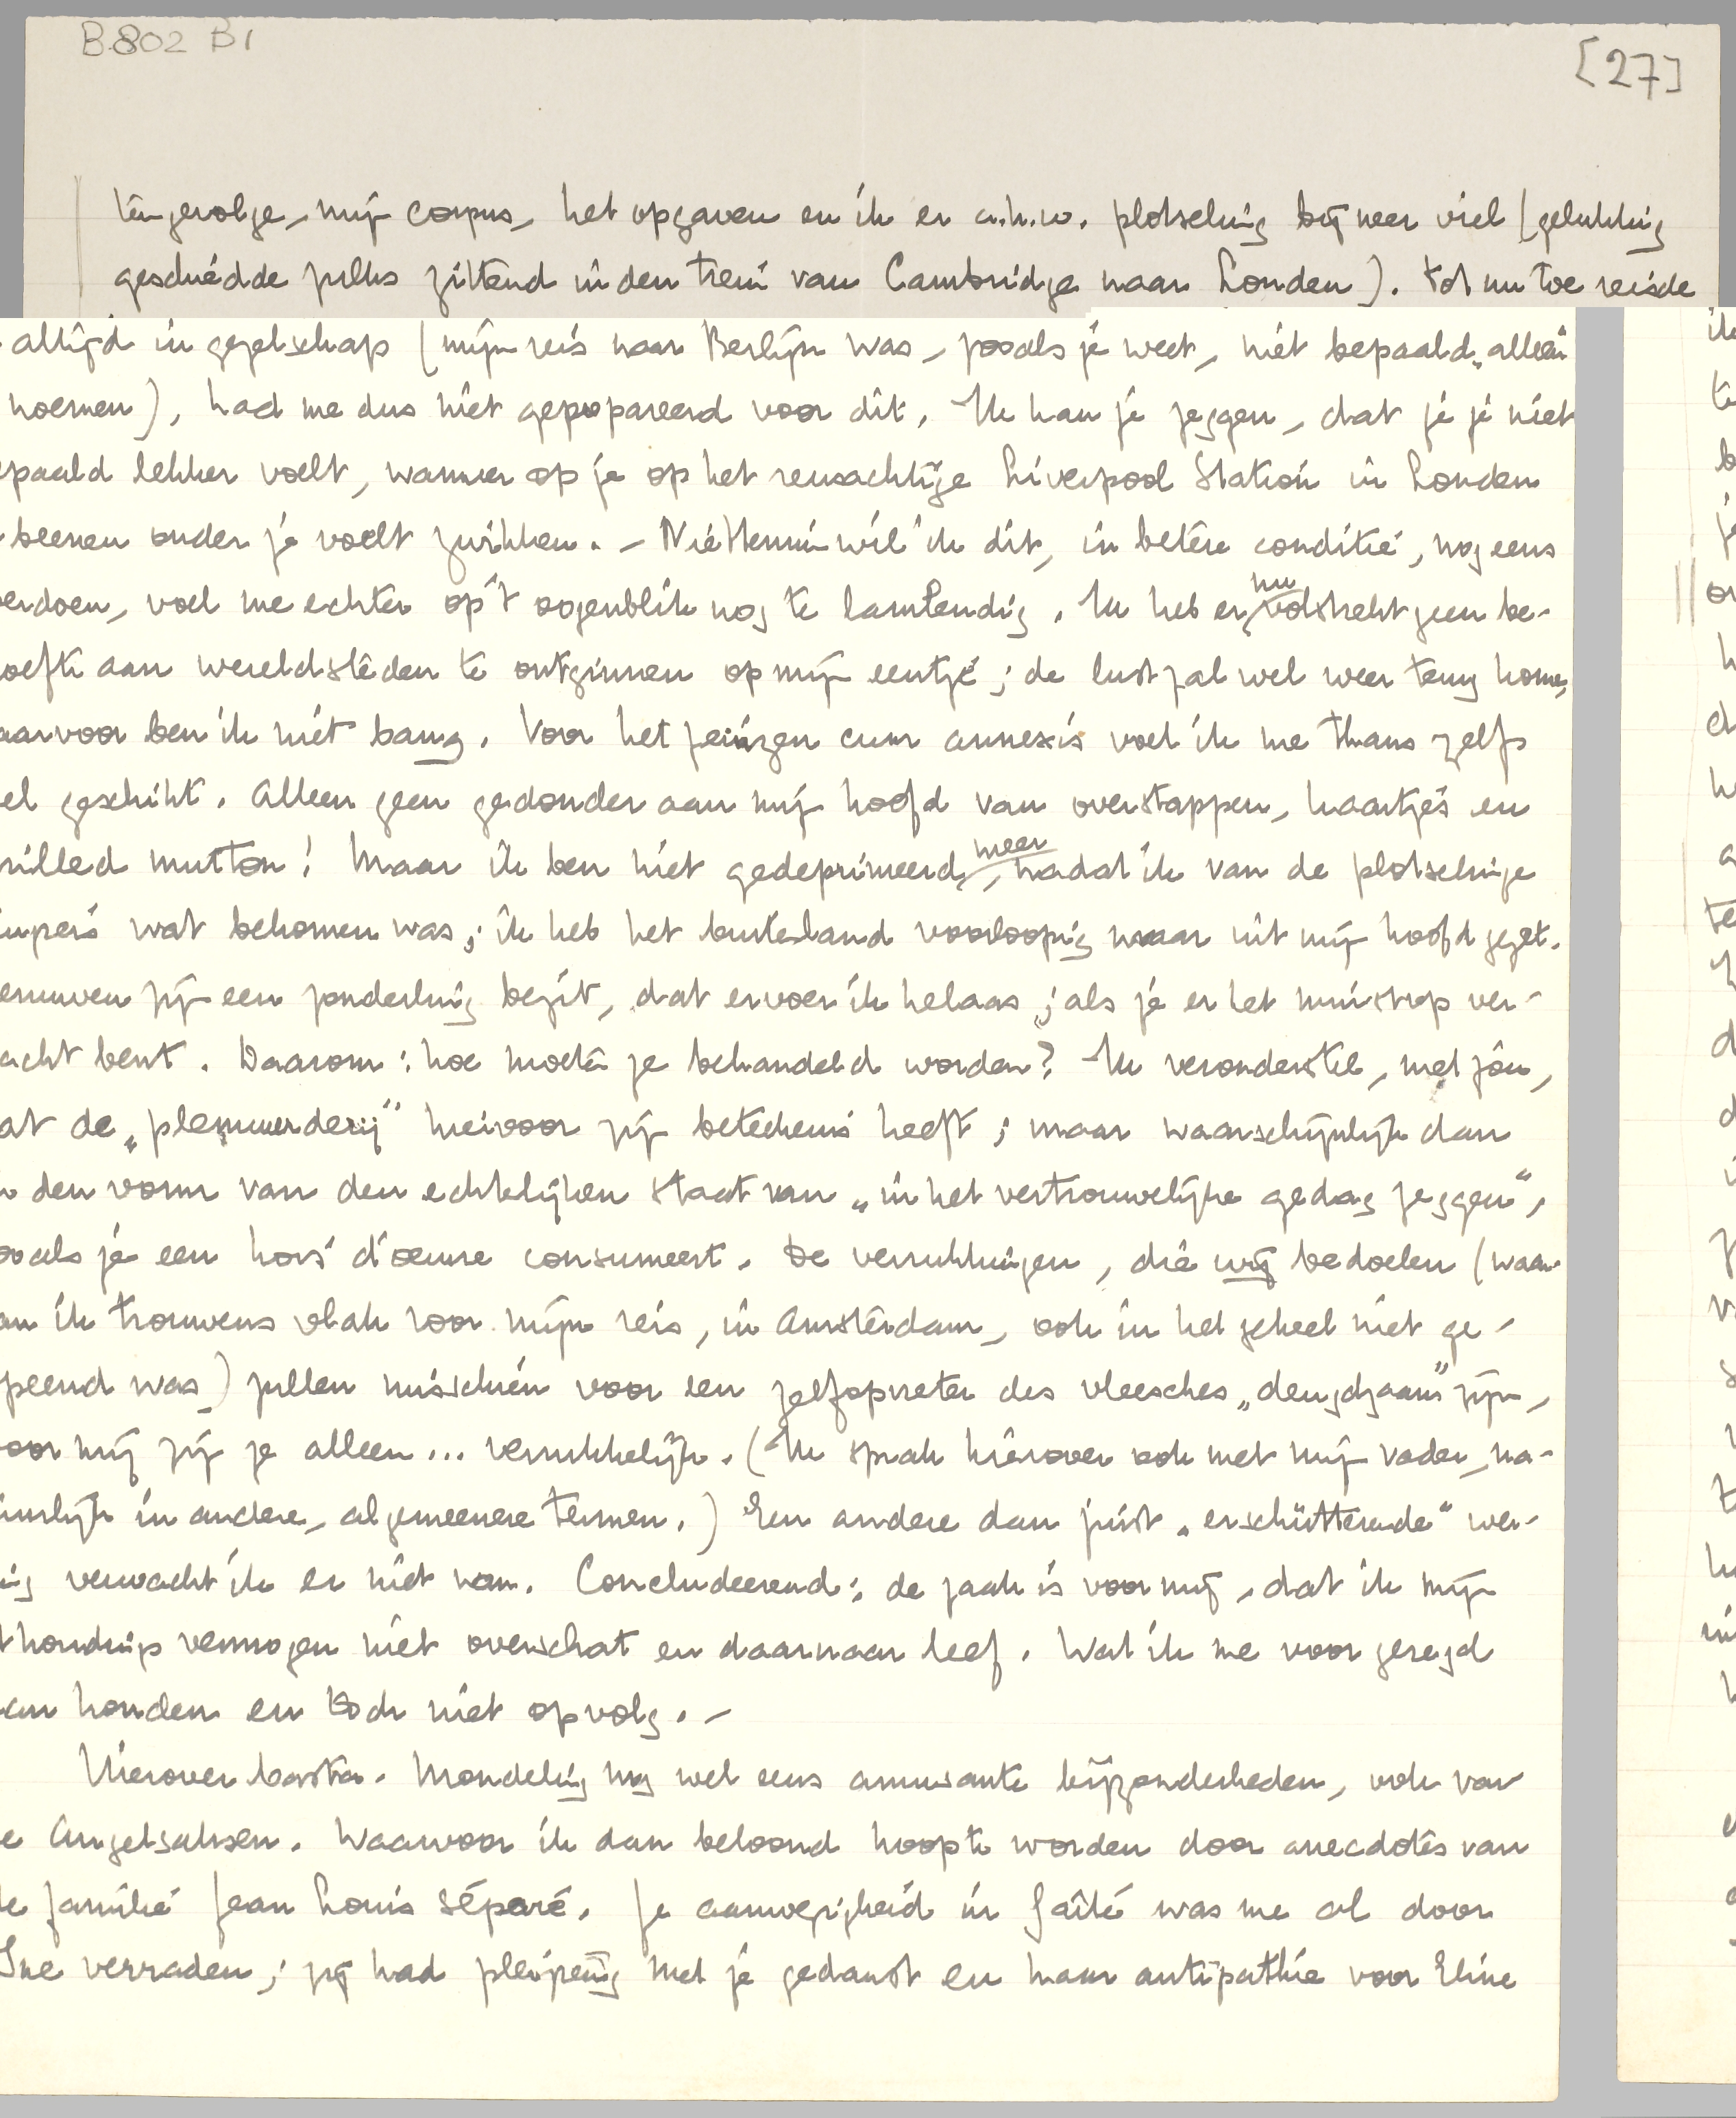 B 802 B1
[27]
tengevolge, mijn corpus, het opgaven en ik er a.h.w. plotseling bij neer viel (gelukkig
geschiedde zulks zittend in den trein van Cambridge naar Londen). Tot nu toe reisde
altijd in gezelschap (mijn reis naar Berlijn was, zooals je weet, niet bepaald „alleen
noemen), had me dus niet geprepareerd voor dit. Ik kan je zeggen, dat je je niet
epaald lekker voelt, wanneer op je op het reusachtige Liverpool Station in Londen
beenen onder je voelt zwikken. – Niettemin wil ik dit, in betere conditie, nog eens
verdoen, voel me echter op 't oogenblik nog te lamlendig. Ik heb er nu volstrekt geen be-
oefte aan wereldsteden te ontginnen op mijn eentje; de lust zal wel weer terug komen,
aarvoor ben ik niet bang. Voor het peinzen cum annexis voel ik me thans zelfs
el geschikt. Alleen geen gedonder aan mijn hoofd van overstappen, kaartjes en
rilled mutton! Maar ik ben niet gedeprimeerd meer, nadat ik van de plotselinge
inzpers wat bekomen was; ik heb het buitenland voorloopig maar uit mijn hoofd gezet.
enuwen zijn een zonderling bezit, dat ervoer ik helaas; als je er het minst op ver-
acht bent. Daarom: hoe moeten ze behandeld worden? Ik veronderstel, met jou,
at de „ hiervoor zijn beteekenis heeft; maar waarschijnlijk dan
n den vorm van den echtelijken staat van „in het vertrouwelijke gedag zeggen",
ooals je een hors d'oeuvre consumeert. De verrukkingen, die wij bedoelen (waar-
an ik trouwens vlak voor mijn reis, in Amsterdam, ook in het geheel niet ge-
peend was) zullen misschien voor een zelfopvreter des vleesches „deugdzaam" zijn,
oor mij zijn ze alleen... verrukkelijk. (Ik sprak hierover ook met mijn vader, na-
uurlijk in andere, algemeenere termen.) Een andere dan juist „erschütterende" wer-
ing verwacht ik er niet van. Concludeerend: de zaak is voor mij, dat ik mijn
thoudings vermogen niet overschat en daarnaar leef. Wat ik me voor gezegd
an houden en toch niet opvolg. –
Hierover basta. Mondeling nog wel eens amusante bijzonderheden, ook van
e Angelsaksen. Waarvoor ik dan beloond hoop te worden door anecdotes van
e familie Jean Louis Séparé. Je aanwezigheid in Gaîté was me al door
Ine verraden; zij had pleizierig met je gedanst en haar antipathie voor Eline